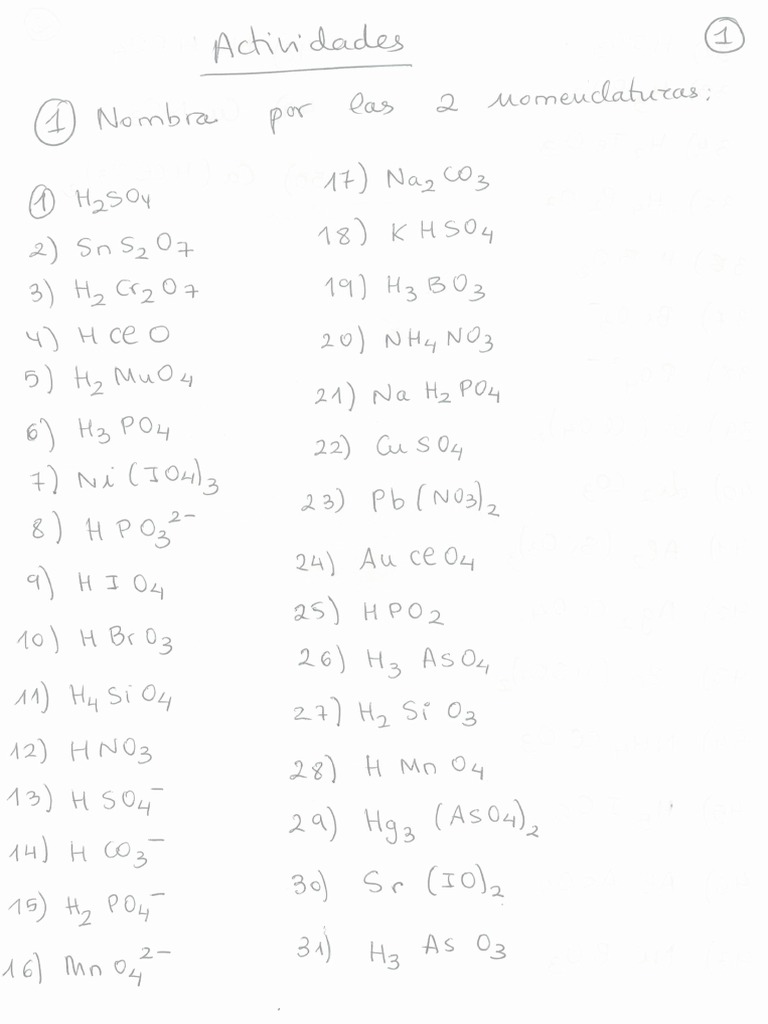 Actividades
①
① Nombra por las 2 nomenclaturas:
① H₂SO₄
2) SnS₂O₇
3) H₂Cr₂O₇
4) HClO
5) H₂MnO₄
6) H₃PO₄
7) Ni(IO₄)₃
8) HPO₃²⁻
9) HIO₄
10) HBrO₃
11) H₄SiO₄
12) HNO₃
13) HSO₄⁻
14) HCO₃⁻
15) H₂PO₄⁻
16) MnO₄²⁻
17) Na₂CO₃
18) KHSO₄
19) H₃BO₃
20) NH₄NO₃
21) NaH₂PO₄
22) CuSO₄
23) Pb(NO₃)₂
24) AuClO₄
25) HPO₂
26) H₃AsO₄
27) H₂SiO₃
28) HMnO₄
29) Hg₃(AsO₄)₂
30) Sr(IO)₂
31) H₃AsO₃